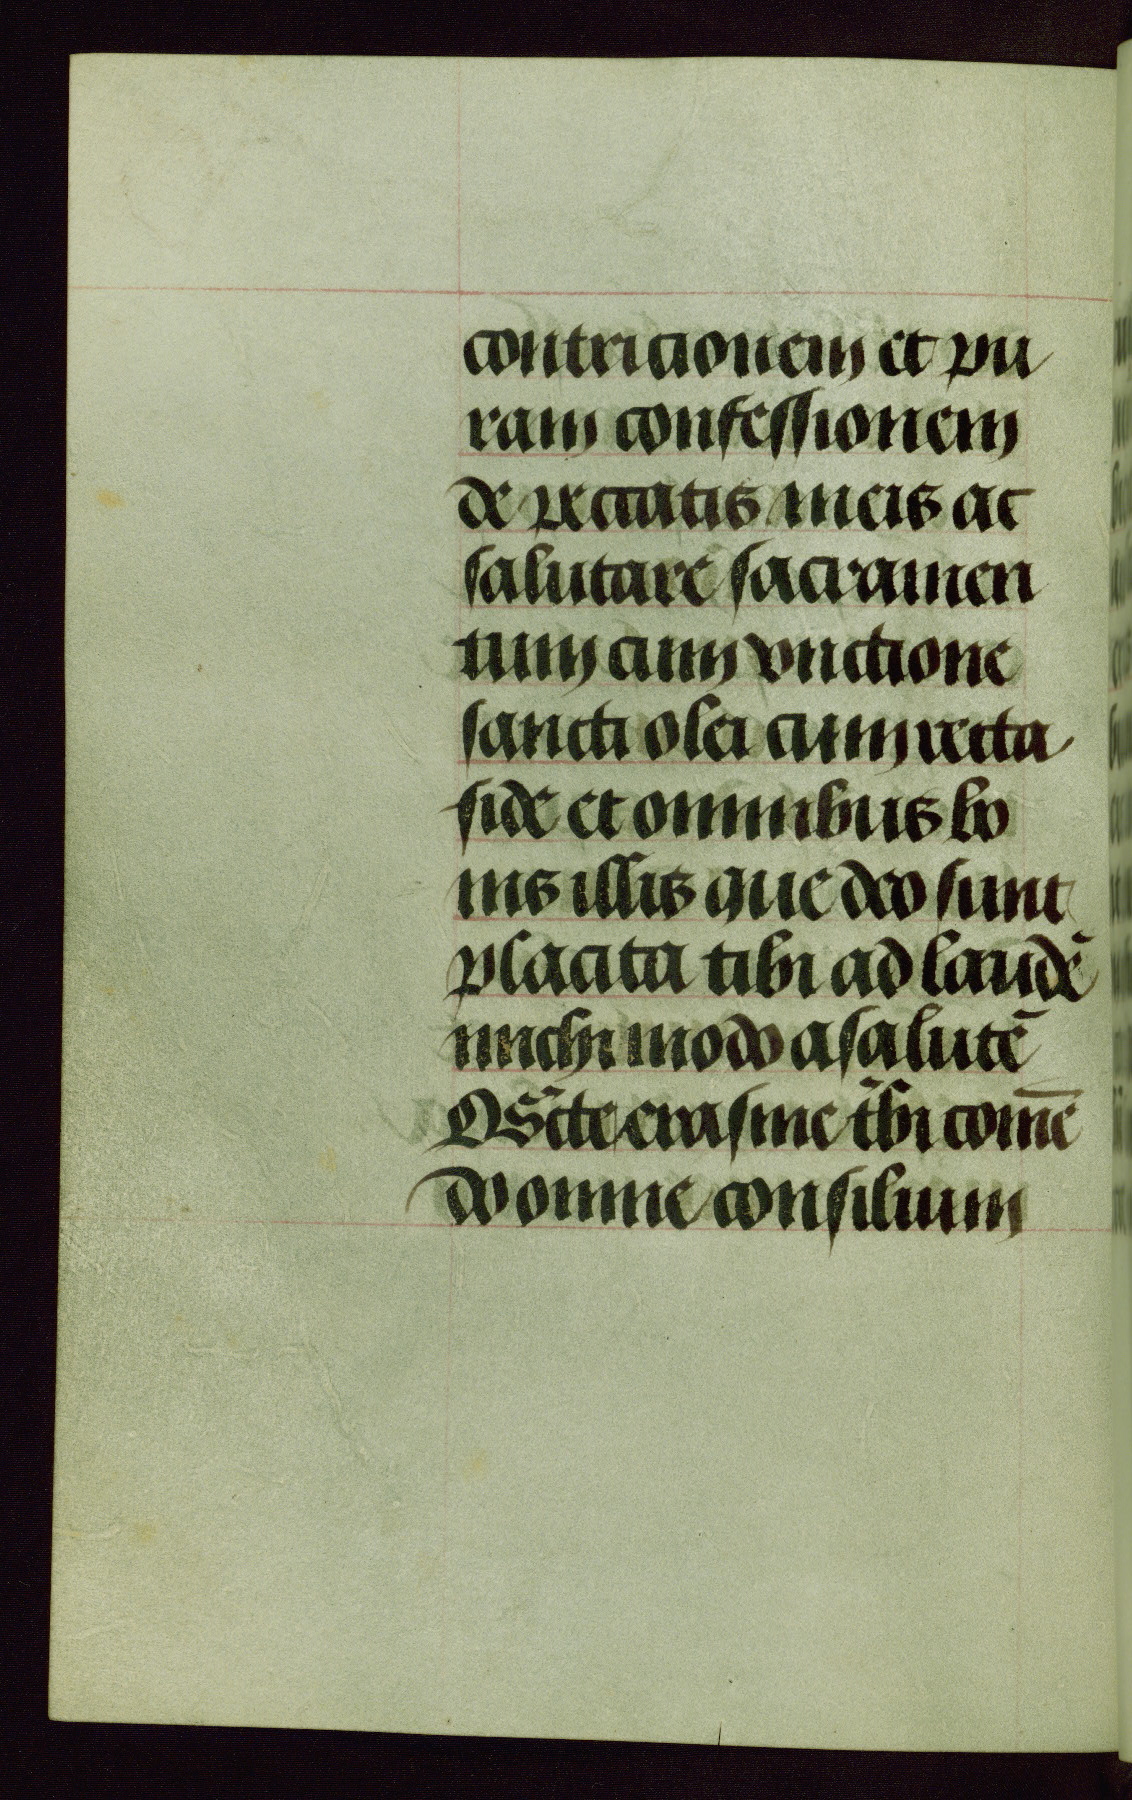 contricionem et pu
ram confessionem
de peccatis meis ac
salutare sacramen
tum cum vnctione
sancti olei cum recta
fide et omnibus bo
nis illis que deo sunt
placita tibi ad laudē
michi modo a salutē
O Sc̄te erasme tibi com̄e
do omne consilium